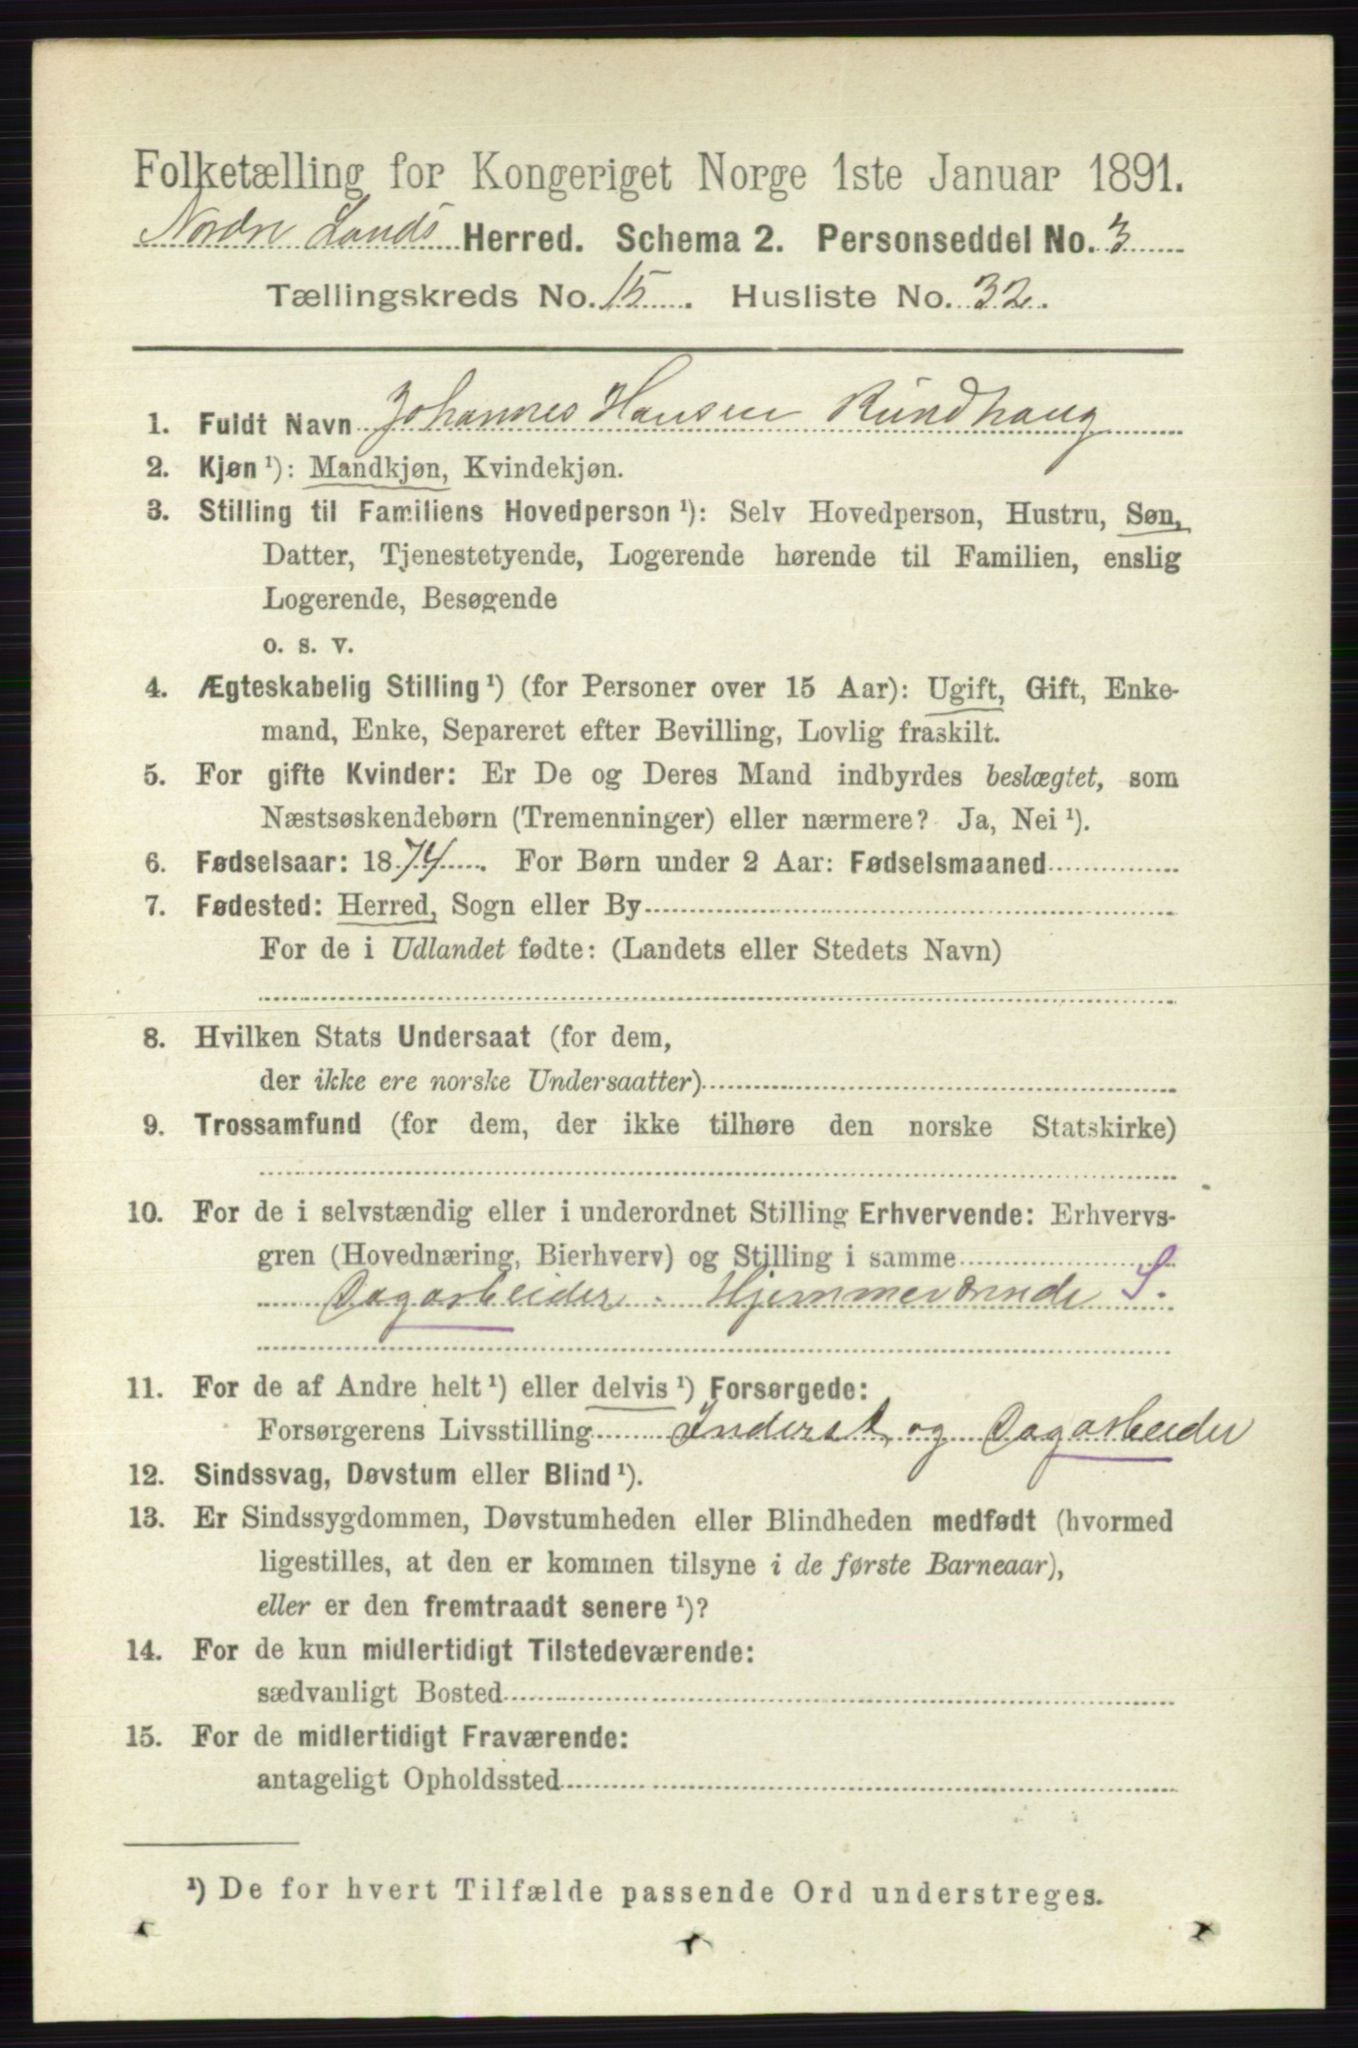 Folketælling for Kongeriget Norge 1ste Januar 1891.
Nordre Lands Herred. Schema 2. Personseddel No. 3
Tællingskreds No. 15. Husliste No. 32.
1. Fuldt Navn Johannes Hansen Rundhaug
2. Kjøn ¹): Mandkjøn, Kvindekjøn.
3. Stilling til Familiens Hovedperson ¹): Selv Hovedperson, Hustru, Søn,
Datter, Tjenestetyende, Logerende hørende til Familien, enslig
Logerende, Besøgende
o. s. v.
4. Ægteskabelig Stilling ¹) (for Personer over 15 Aar): Ugift, Gift, Enke-
mand, Enke, Separeret efter Bevilling, Lovlig fraskilt.
5. For gifte Kvinder: Er De og Deres Mand indbyrdes beslægtet, som
Næstsøskendebørn (Tremenninger) eller nærmere? Ja, Nei ¹).
6. Fødselsaar: 1874. For Børn under 2 Aar: Fødselsmaaned
7. Fødested: Herred, Sogn eller By
For de i Udlandet fødte: (Landets eller Stedets Navn)
8. Hvilken Stats Undersaat (for dem,
der ikke ere norske Undersaatter)
9. Trossamfund (for dem, der ikke tilhøre den norske Statskirke)
10. For de i selvstændig eller i underordnet Stilling Erhvervende: Erhvervs-
gren (Hovednæring, Bierhverv) og Stilling i samme
Dagarbeider. Hjemmeværende S.
11. For de af Andre helt ¹) eller delvis ¹) Forsørgede:
Forsørgerens Livsstilling Inderst og Dagarbeider
12. Sindssvag, Døvstum eller Blind ¹).
13. Er Sindssygdommen, Døvstumheden eller Blindheden medfødt (hvormed
ligestilles, at den er kommen tilsyne i de første Barneaar),
eller er den fremtraadt senere ¹)?
14. For de kun midlertidigt Tilstedeværende:
sædvanligt Bosted
15. For de midlertidigt Fraværende:
antageligt Opholdssted
¹) De for hvert Tilfælde passende Ord understreges.